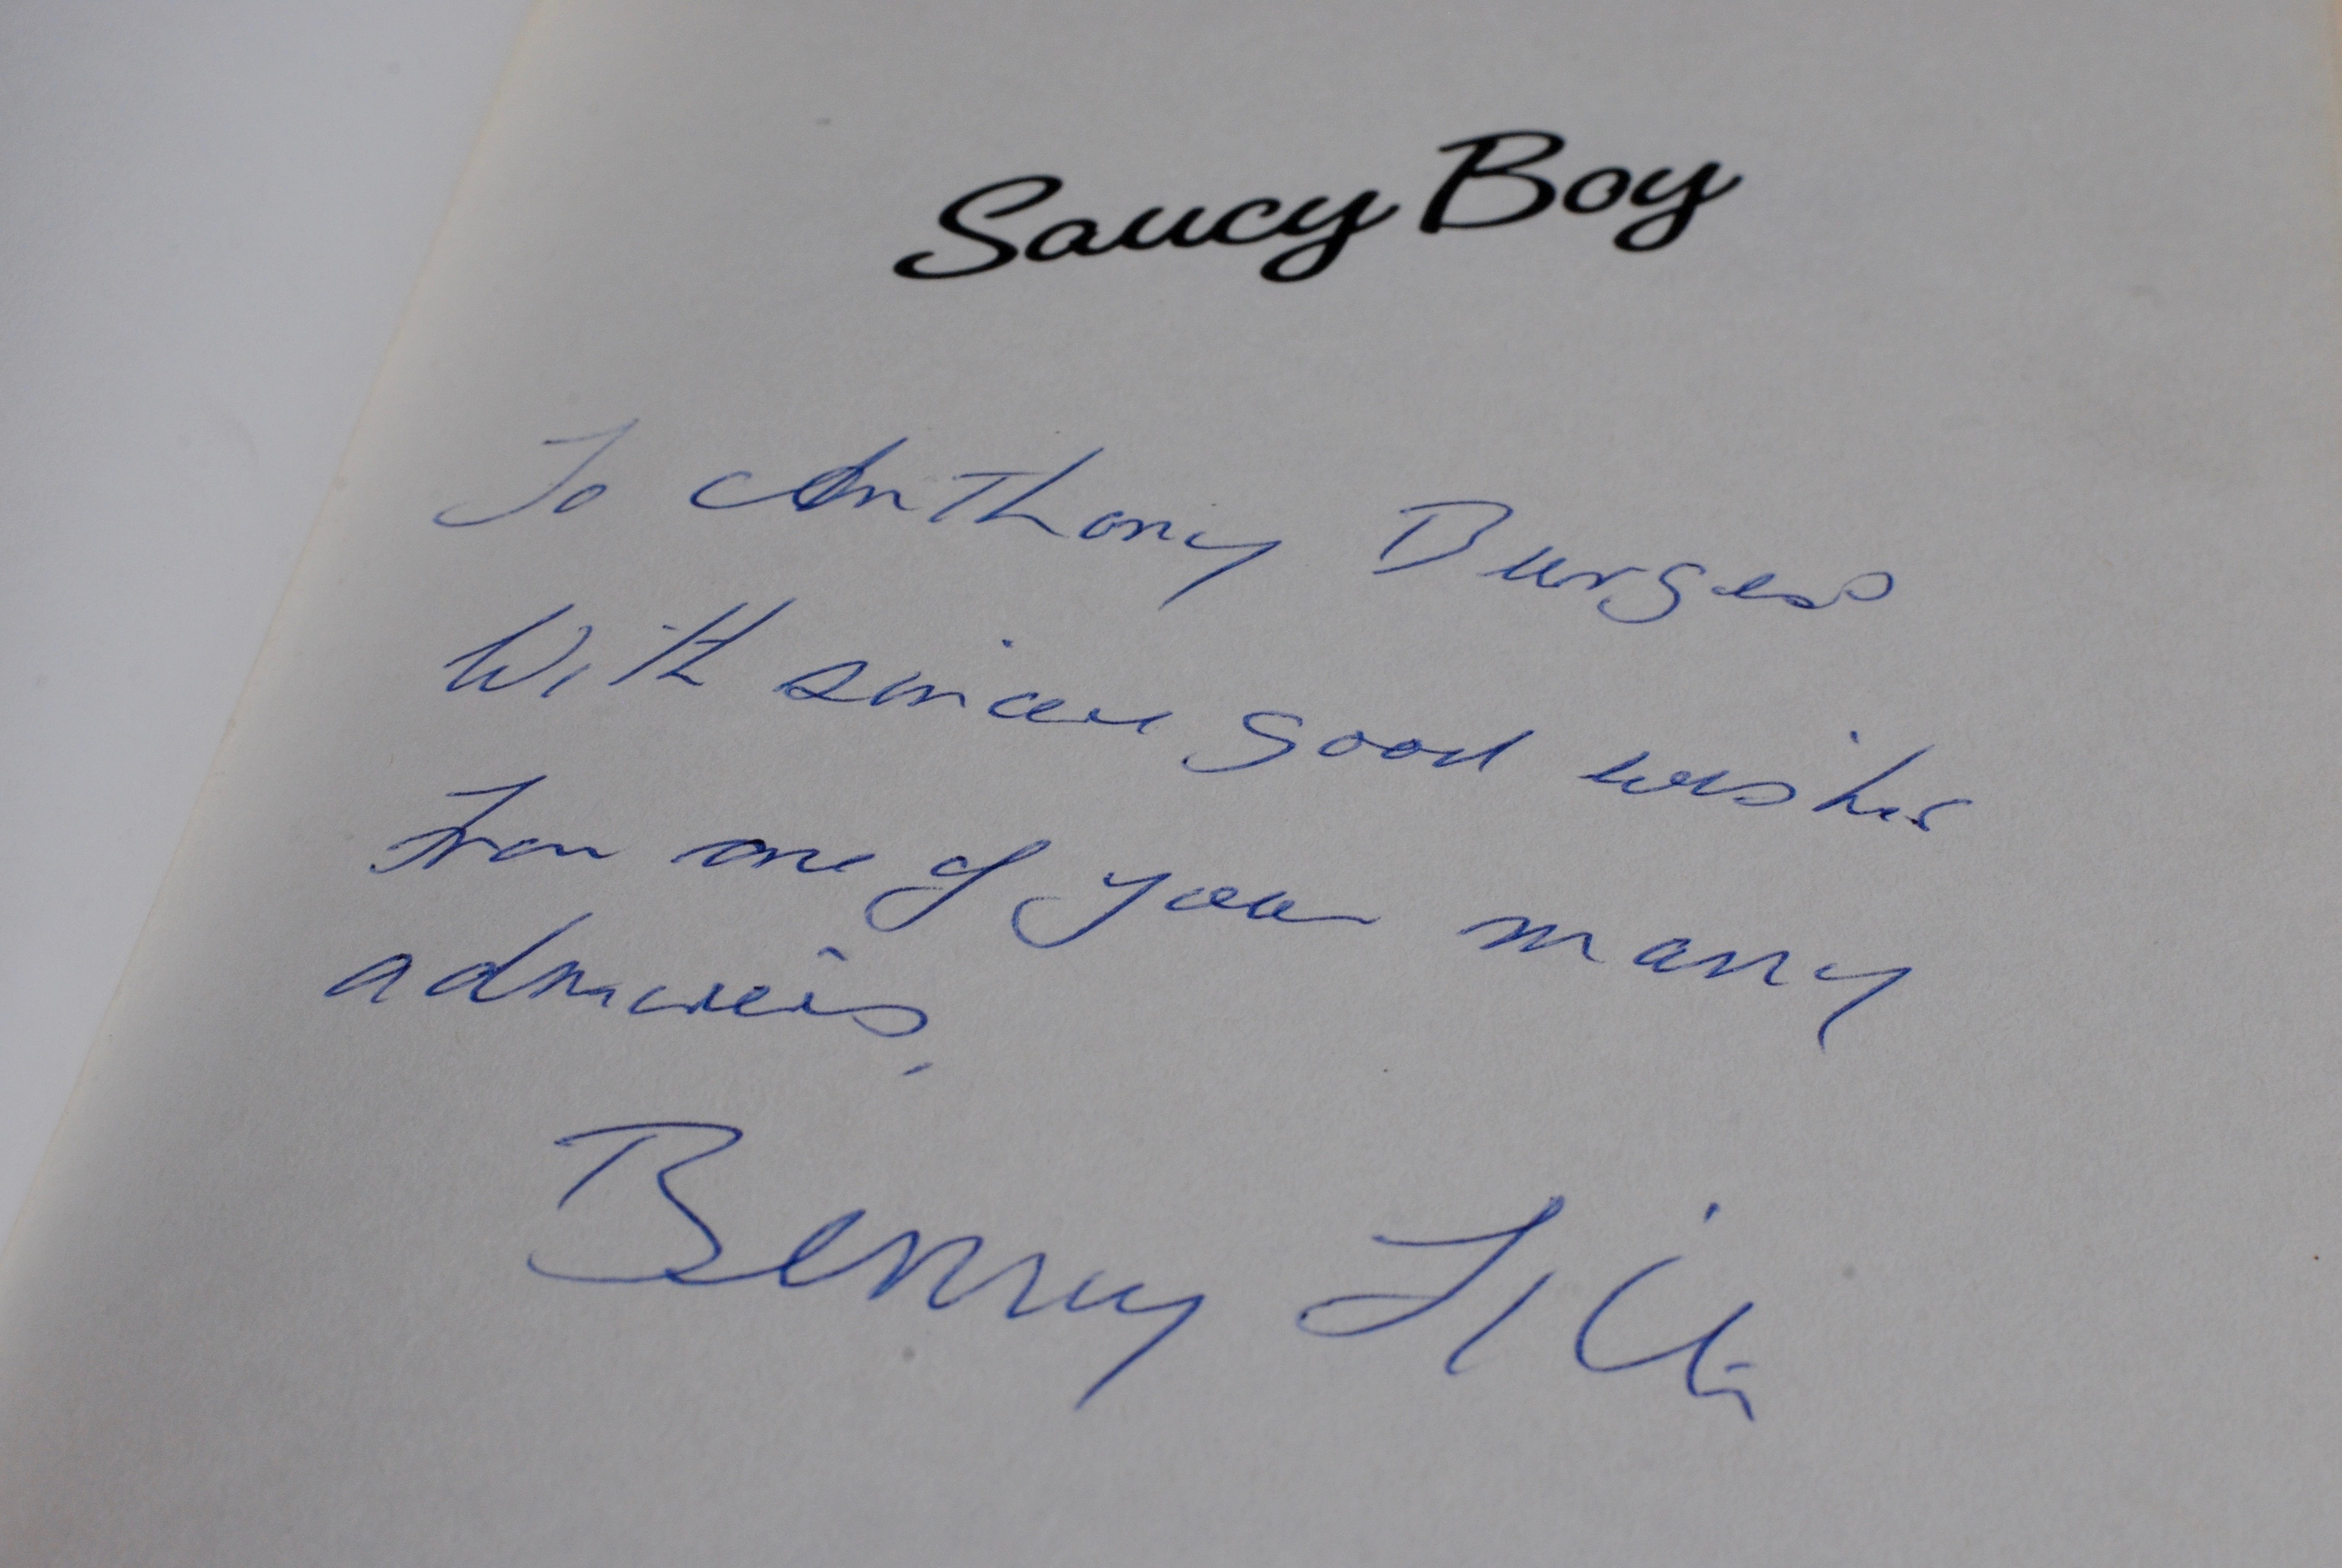 Saucy Boy
To Anthony Burgess
With sincere good wishes
From one of your many
admirers.
Benny Hill